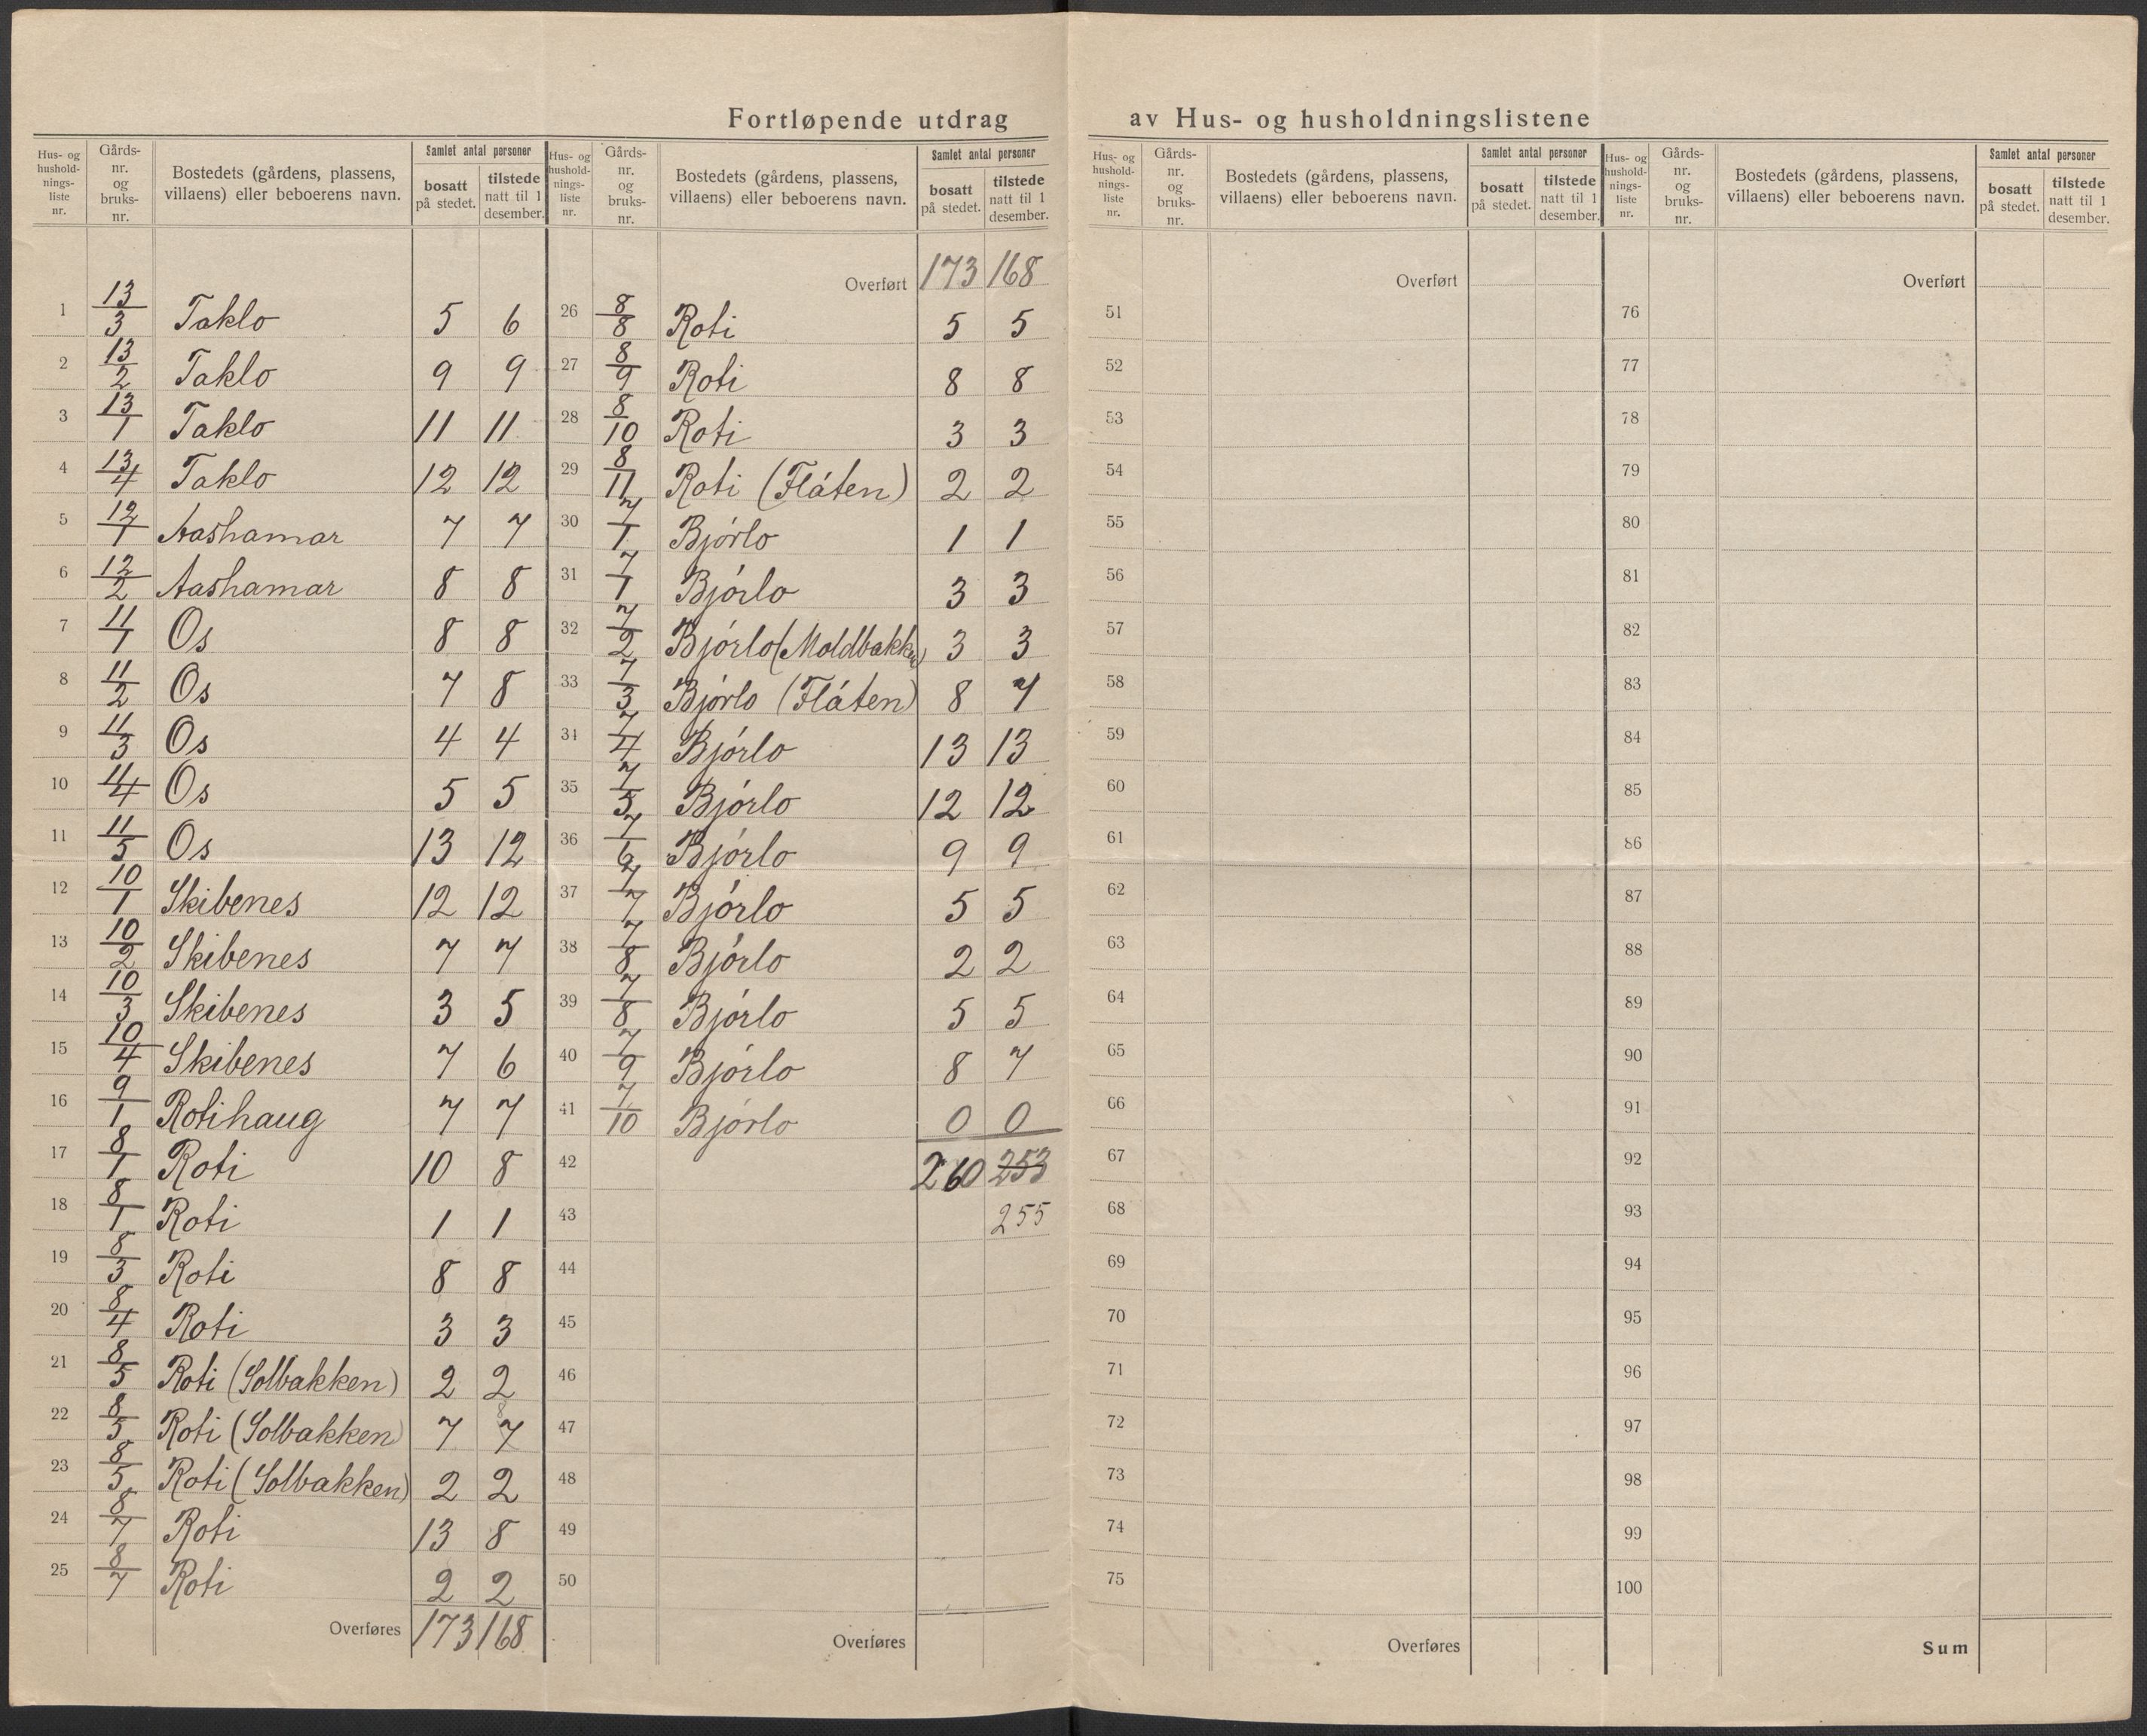 Fortløpende utdrag av Hus- og husholdningslistene
Hus- og hushold-nings-liste nr. | Gårds-nr. og bruks-nr. | Bostedets (gårdens, plassens, villaens) eller beboerens navn. | Samlet antal personer | bosatt på stedet. | tilstede natt til 1 desember.
1 13/3 Taklo 5 6
2 13/2 Taklo 9 9
3 13/1 Taklo 11 11
4 13/4 Taklo 12 12
5 12/1 Aashamar 7 7
6 12/2 Aashamar 8 8
7 11/1 Os 8 8
8 11/2 Os 7 8
9 11/3 Os 4 4
10 11/4 Os 5 5
11 11/5 Os 13 12
12 10/1 Skibenes 12 12
13 10/2 Skibenes 7 7
14 10/3 Skibenes 3 5
15 10/4 Skibenes 7 6
16 9/1 Rotihaug 7 7
17 8/1 Roti 10 8
18 8/1 Roti 1 1
19 8/3 Roti 8 8
20 8/4 Roti 3 3
21 8/5 Roti (Solbakken) 2 2
22 8/5 Roti (Solbakken) 7 7 8
23 8/5 Roti (Solbakken) 2 2
24 8/7 Roti 13 8
25 8/7 Roti 2 2
Overføres 173 168
Hus- og hushold-nings-liste nr. | Gårds-nr. og bruks-nr. | Bostedets (gårdens, plassens, villaens) eller beboerens navn. | Samlet antal personer | bosatt på stedet. | tilstede natt til 1 desember.
Overført 173 168
26 8/8 Roti 5 5
27 8/9 Roti 8 8
28 8/10 Roti 3 3
29 8/11 Roti (Fláten) 2 2
30 7/1 Bjórlo 1 1
31 7/1 Bjórlo 3 3
32 7/2 Bjórlo (Moldbakken) 3 3
33 7/3 Bjórlo (Fláten) 8 7
34 7/4 Bjórlo 13 13
35 7/5 Bjórlo 12 12
36 7/6 Bjórlo 9 9
37 7/7 Bjórlo 5 5
38 7/8 Bjórlo 2 2
39 7/8 Bjórlo 5 5
40 7/9 Bjórlo 8 7
41 7/10 Bjórlo 0 0
42 260 253
43 255
44
45
46
47
48
49
50
Overføres
Hus- og hushold-nings-liste nr. | Gårds-nr. og bruks-nr. | Bostedets (gårdens, plassens, villaens) eller beboerens navn. | Samlet antal personer | bosatt på stedet. | tilstede natt til 1 desember.
Overført
51
52
53
54
55
56
57
58
59
60
61
62
63
64
65
66
67
68
69
70
71
72
73
74
75
Overføres
Hus- og hushold-nings-liste nr. | Gårds-nr. og bruks-nr. | Bostedets (gårdens, plassens, villaens) eller beboerens navn. | Samlet antal personer | bosatt på stedet. | tilstede natt til 1 desember.
Overført
76
77
78
79
80
81
82
83
84
85
86
87
88
89
90
91
92
93
94
95
96
97
98
99
100
Sum